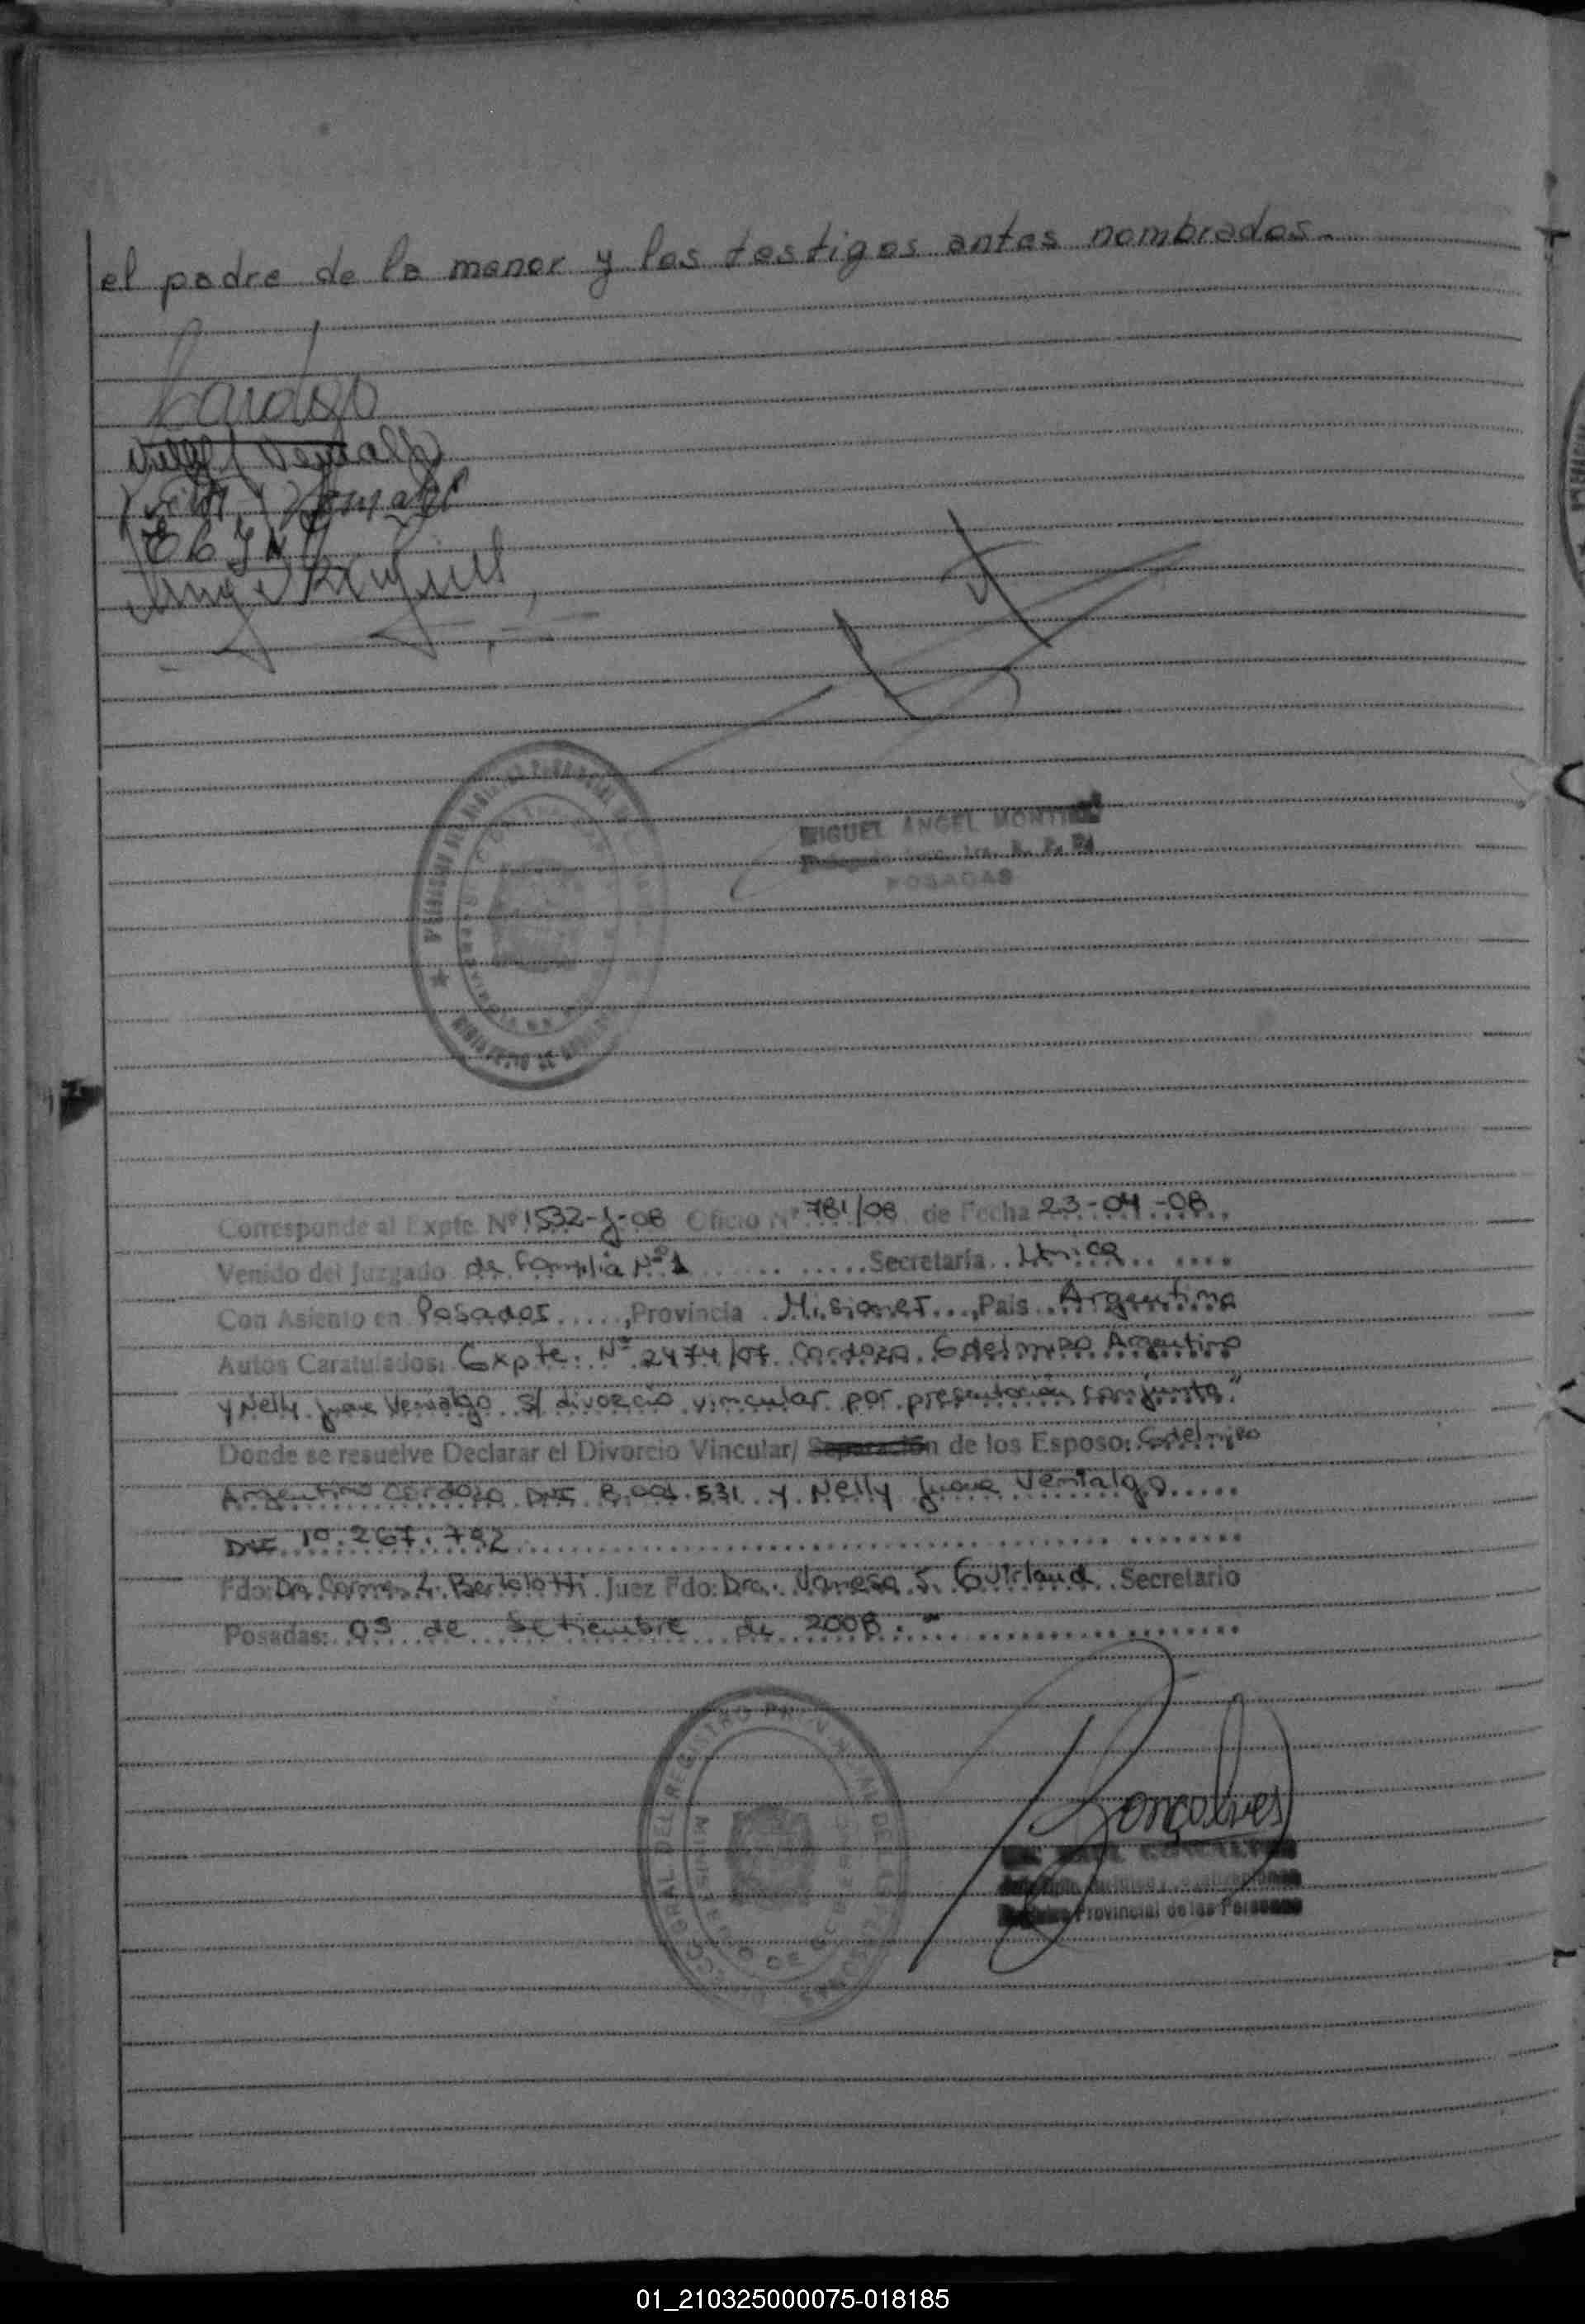 el padre de la menor y los testigos antes nombrados.
Cardozo
MIGUEL ANGEL
POSADAS
Corresponde al Expte. Nº 1532-J-08 Oficio Nº 781/08 de Fecha 23-04-08
Venido del Juzgado de Familia Nº 1 Secretaría Unica
Con Asiento en Posadas, Provincia Misiones, Pais Argentina
Autos Caratulados: Expte. Nº 2474/07 Cardozo Edelmiro Argentino
y Nelly Juana Venialgo s/ divorcio vincular por presentación conjunta"
Donde se resuelve Declarar el Divorcio Vincular/ Separación de los Esposo: Edelmiro
Argentino Cardozo DNI 8.001.531 y Nelly Juana Venialgo
DNI 10.267.792
Fdo: Dra. Carmen L. Bertolotti Juez Fdo: Dra. Vanesa S. Guirland Secretario
Posadas: 03 de Setiembre de 2008.
Gonçalves
Provincial de las Personas
01_210325000075-018185